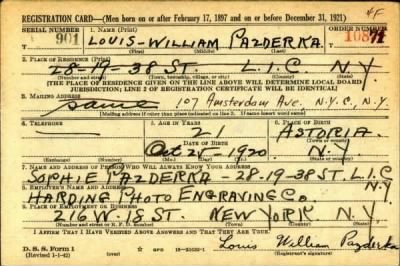 4F
REGISTRATION CARD—(Men born on or after February 17, 1897 and on or before December 31, 1921)
SERIAL NUMBER 1. NAME (Print) ORDER NUMBER
901 LOUIS-WILLIAM PAZDERKA
(First) (Middle) (Last)
2. PLACE OF RESIDENCE (Print)
28-19-38 ST. L.I.C. N.Y.
(Number and street) (Town, township, village, or city) (County) (State)
[THE PLACE OF RESIDENCE GIVEN ON THE LINE ABOVE WILL DETERMINE LOCAL BOARD
JURISDICTION; LINE 2 OF REGISTRATION CERTIFICATE WILL BE IDENTICAL]
3. MAILING ADDRESS
Same 107 Amsterdam Ave. N.Y.C., N.Y.
[Mailing address if other than place indicated on line 2. If same insert word same]
4. TELEPHONE 5. AGE IN YEARS 6. PLACE OF BIRTH
— 21 ASTORIA
DATE OF BIRTH
Oct 25 1920 N.Y.
(Exchange) (Number) (Mo.) (Day) (Yr.) (State or country)
7. NAME AND ADDRESS OF PERSON WHO WILL ALWAYS KNOW YOUR ADDRESS
SOPHIE PAZDERKA 28-19-38 ST. L.I.C
N.Y.
8. EMPLOYER'S NAME AND ADDRESS
HARDING PHOTO ENGRAVING Co.
9. PLACE OF EMPLOYMENT OR BUSINESS
216 W-18 ST. NEW YORK N.Y.
(Number and street or R. F. D. number) (Town) (County) (State)
I AFFIRM THAT I HAVE VERIFIED ABOVE ANSWERS AND THAT THEY ARE TRUE.
D. S. S. Form 1
(Revised 1-1-42) GPO Louis William Pazderka